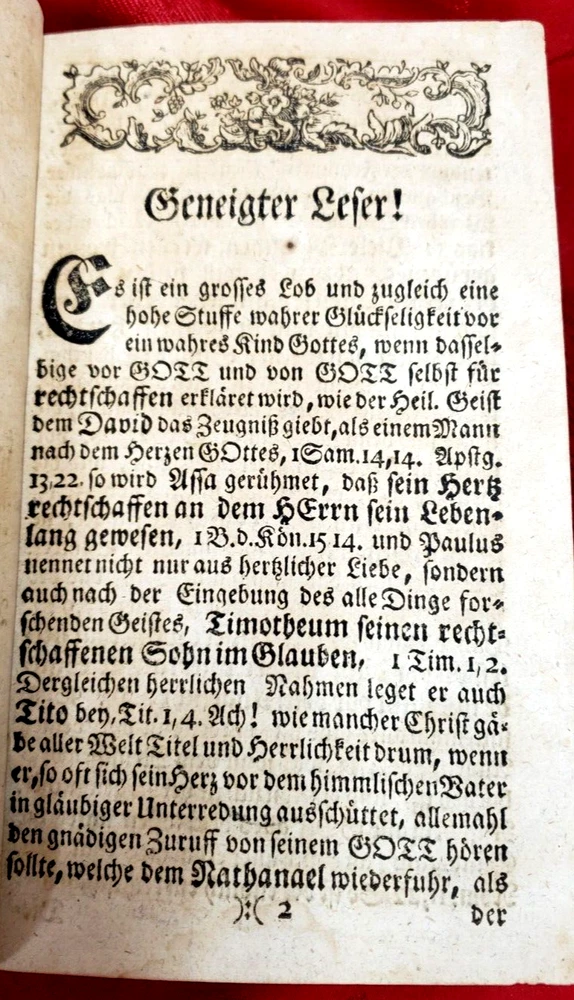 Geneigter Leser!
Es ist ein grosses Lob und zugleich eine
hohe Stuffe wahrer Glückseligkeit vor
ein wahres Kind Gottes, wenn dassel-
bige vor GOTT und von GOTT selbst für
rechtschaffen erkläret wird, wie der Heil. Geist
dem David das Zeugniß giebt, als einem Mann
nach dem Herzen GOttes, 1 Sam. 14, 14. Apstg.
13, 22. so wird Assa gerühmet, daß sein Hertz
rechtschaffen an dem HErrn sein Leben-
lang gewesen, 1 B. d. Kön. 15 14. und Paulus
nennet nicht nur aus hertzlicher Liebe, sondern
auch nach der Eingebung des alle Dinge for-
schenden Geistes, Timotheum seinen recht-
schaffenen Sohn im Glauben, 1 Tim. 1, 2.
Dergleichen herrlichen Nahmen leget er auch
Tito bey, Tit. 1, 4. Ach! wie mancher Christ gä-
be aller Welt Titel und Herrlichkeit drum, wenn
er, so oft sich sein Herz vor dem himmlischen Vater
in gläubiger Unterredung ausschüttet, allemahl
den gnädigen Zuruff von seinem GOTT hören
sollte, welche dem Nathanael wiederfuhr, als
):( 2
der